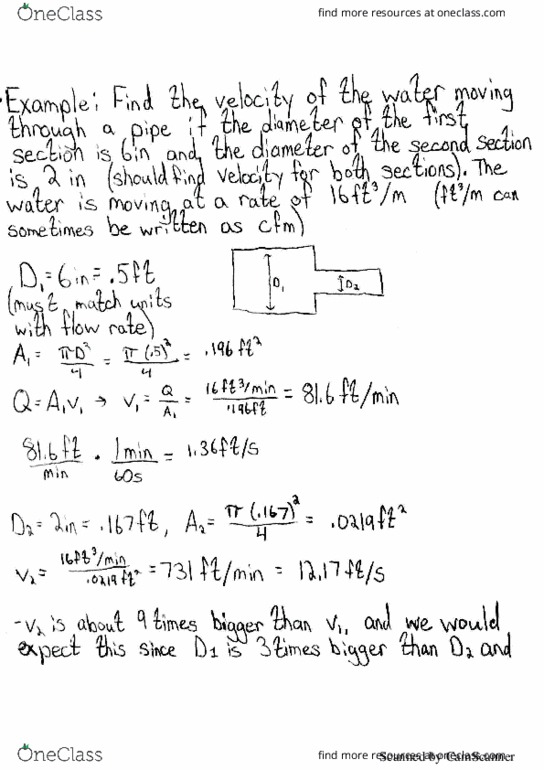 OneClass
find more resources at oneclass.com
Example: Find the velocity of the water moving
through a pipe if the diameter of the first
section is 6in and the diameter of the second section
is 2 in (should find velocity for both sections). The
water is moving at a rate of 16ft³/m (ft³/m can
sometimes be written as cfm)
D₁ = 6in = .5ft
(must match units
with flow rate)
D₁
D₂
A₁ = πD²/4 = π(.5)²/4 = .196 ft²
Q = A₁v₁ → v₁ = Q/A₁ = 16ft³/min/.196ft = 81.6 ft/min
81.6ft/min · 1min/60s = 1.36ft/s
D₂ = 2in = .167ft, A₂ = π(.167)²/4 = .0219ft²
v₂ = 16ft³/min/.0219ft² = 731 ft/min = 12.17ft/s
-v₂ is about 9 times bigger than v₁, and we would
expect this since D1 is 3 times bigger than D2 and
OneClass
find more resources at oneclass.com
Scanned by CamScanner